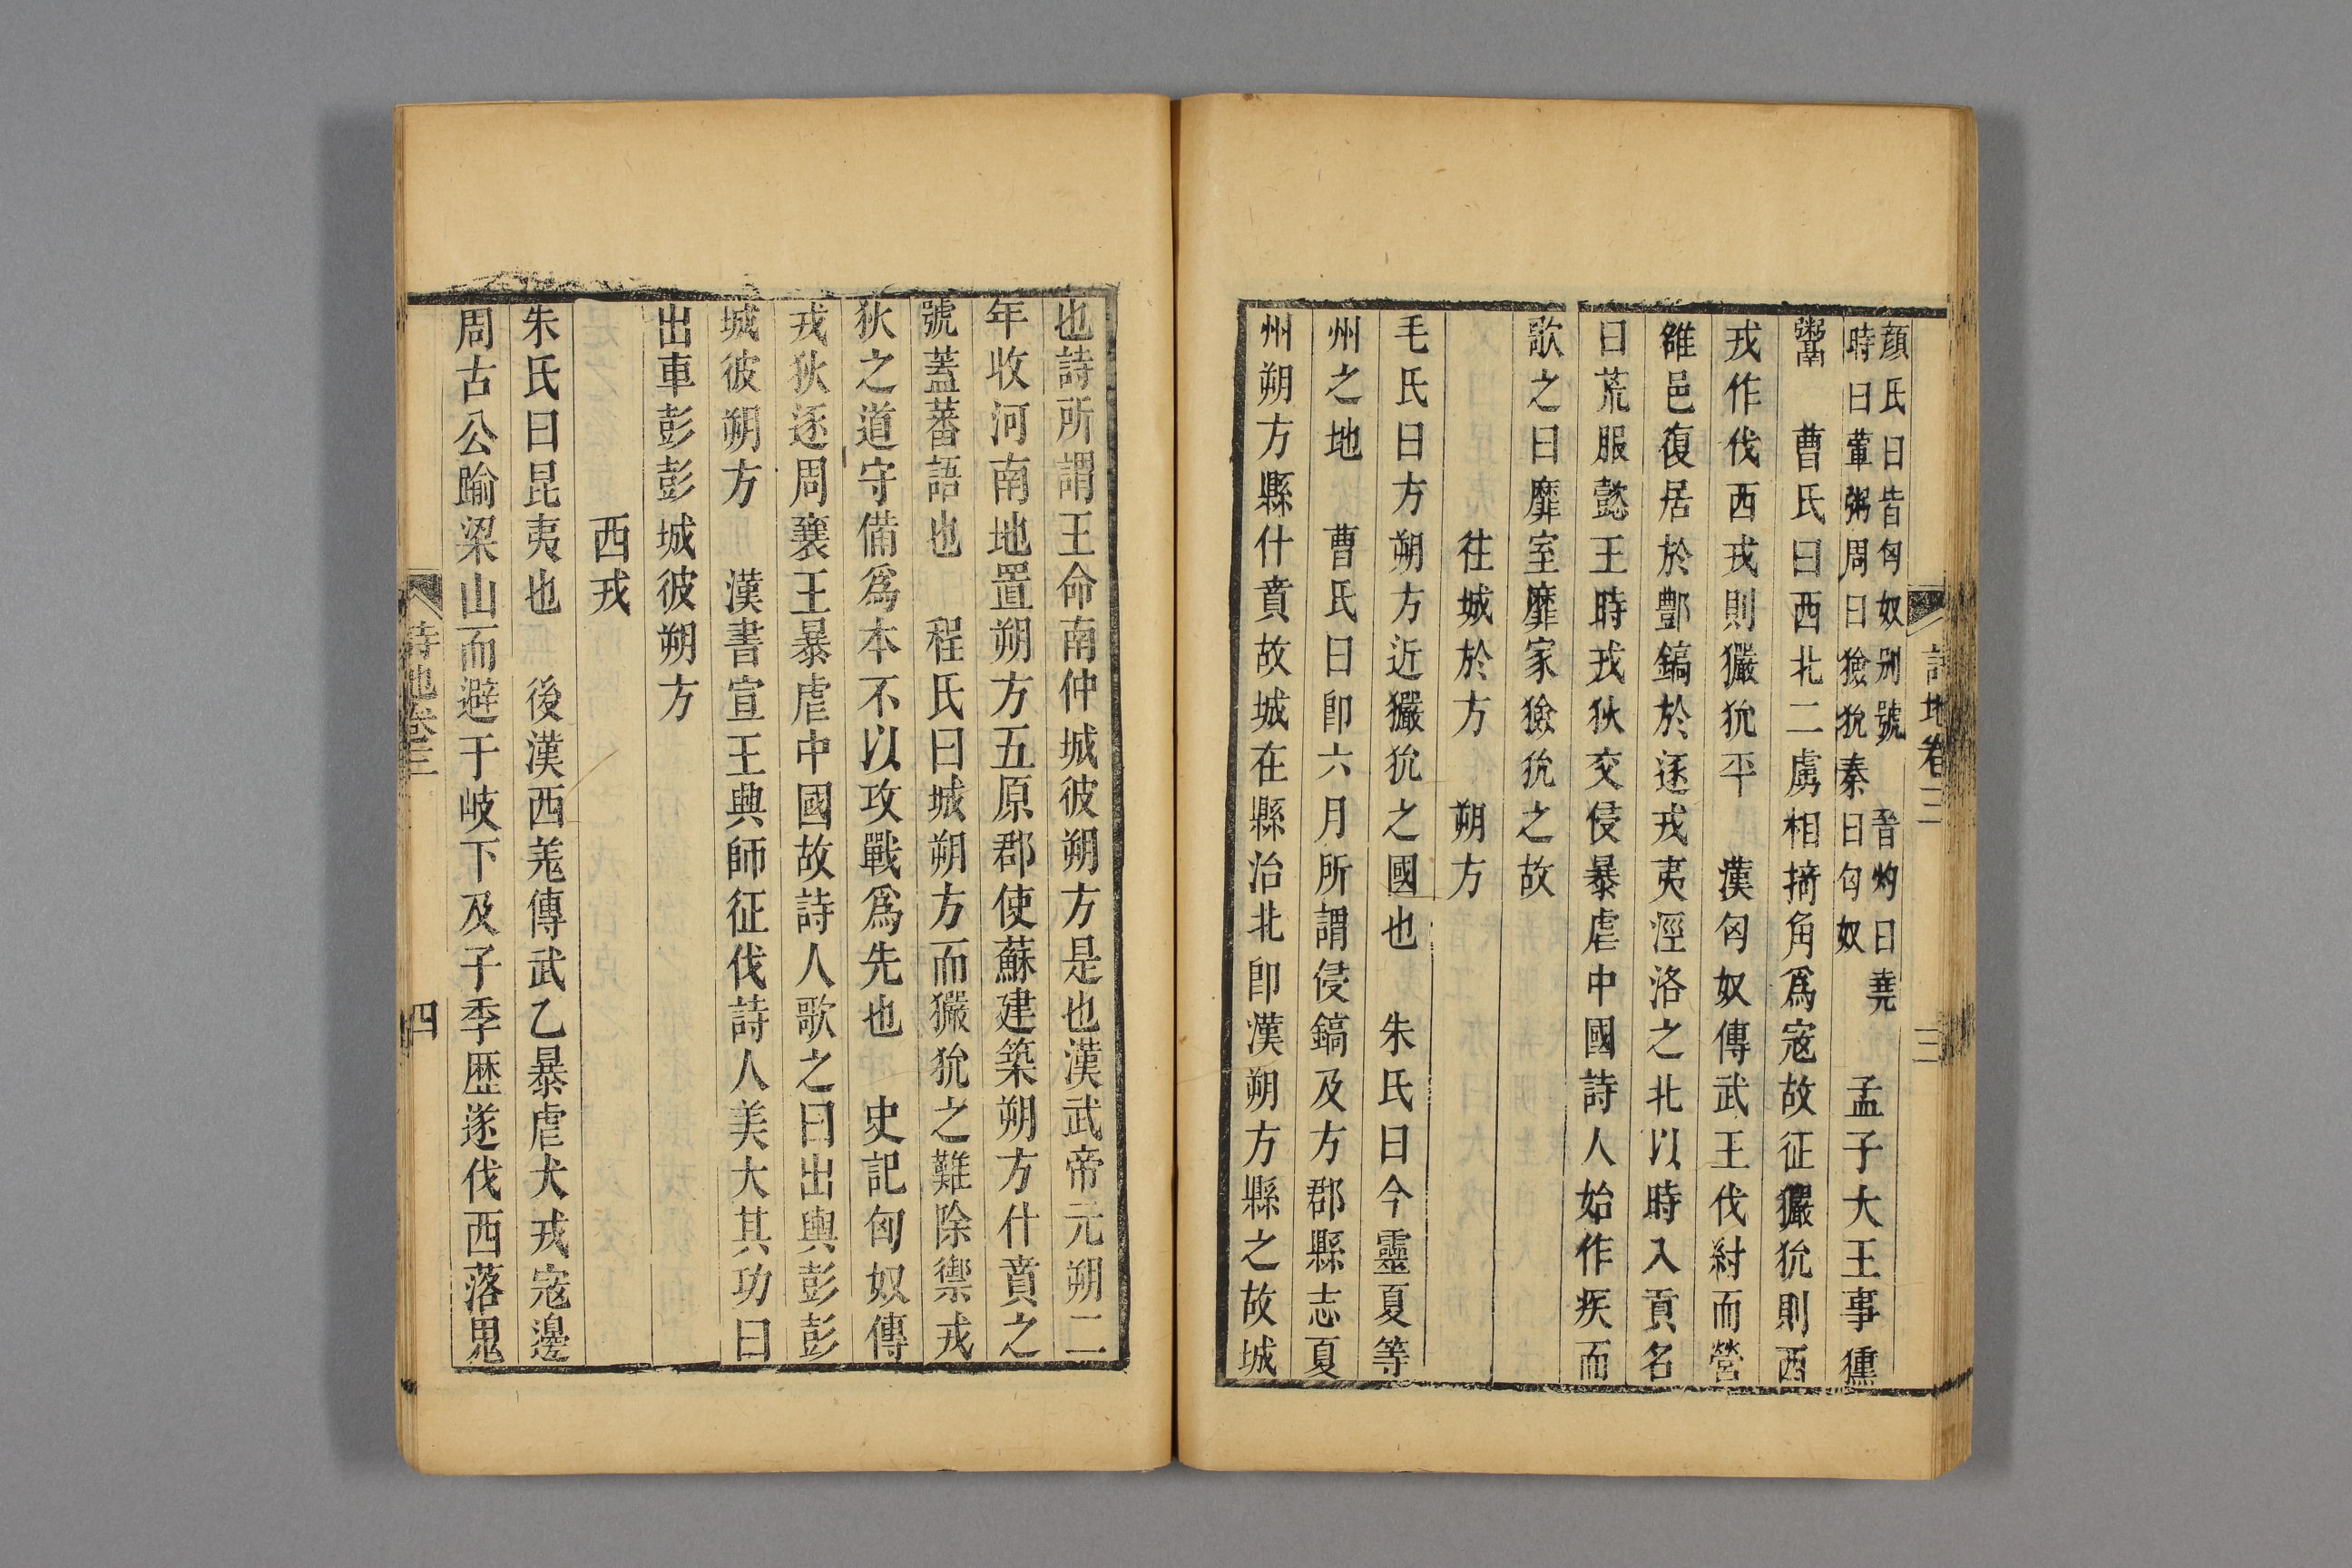 詩地卷三
三
顔氏曰皆匈奴别號　晉灼曰堯
時曰葷粥周曰獫狁秦曰匈奴
孟子大王事獯
鬻　曹氏曰西北二虜相掎角爲寇故征玁狁則西
戎作伐西戎則玁狁平　漢匈奴傳武王伐紂而營
雒邑復居於酆鎬於逐戎夷涇洛之北以時入貢名
曰荒服懿王時戎狄交侵暴虐中國詩人始作疾而
歌之曰靡室靡家獫狁之故
徃城於方　朔方
毛氏曰方朔方近玁狁之國也　朱氏曰今靈夏等
州之地　曹氏曰卽六月所謂侵鎬及方郡縣志夏
州朔方縣什賁故城在縣治北卽漢朔方縣之故城
也詩所謂王命南仲城彼朔方是也漢武帝元朔二
年收河南地置朔方五原郡使蘇建築朔方什賁之
號蓋蕃語也　程氏曰城朔方而玁狁之難除禦戎
狄之道守備爲本不以攻戰爲先也　史記匈奴傳
戎狄逐周襄王暴虐中國故詩人歌之曰出輿彭彭
城彼朔方　漢書宣王興師征伐詩人美大其功曰
出車彭彭城彼朔方
西戎
朱氏曰昆夷也　後漢西羌傳武乙暴虐犬戎寇邊
周古公踰梁山而避于岐下及子季歴遂伐西落鬼
詩地卷三
四